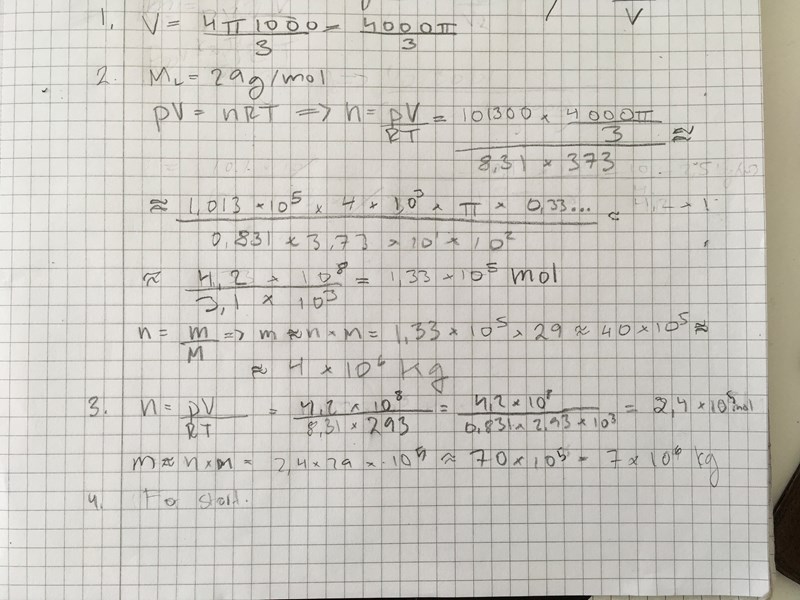 1. V = 4π1000/3 = 4000π/3
V
2. ML = 29g/mol
pV = nRT => n = pV/RT = (101300 × 4000π/3)/(8,31 × 373) ≈
≈ (1,013 × 10^5 × 4 × 10^3 × π × 0,33...)/(0,831 × 3,73 × 10^1 × 10^2) ≈ 4,2 × 1
≈ (4,2 × 10^8)/(3,1 × 10^3) = 1,33 × 10^5 mol
n = m/M => m ≈ n × M = 1,33 × 10^5 × 29 ≈ 40 × 10^5 ≈
≈ 4 × 10^6 kg
3. n = pV/RT = (4,2 × 10^8)/(8,31 × 293) = (4,2 × 10^8)/(0,831 × 2,93 × 10^3) = 2,4 × 10^5 mol
m ≈ n × m = 2,4 × 29 × 10^5 ≈ 70 × 10^5 = 7 × 10^6 kg
4.